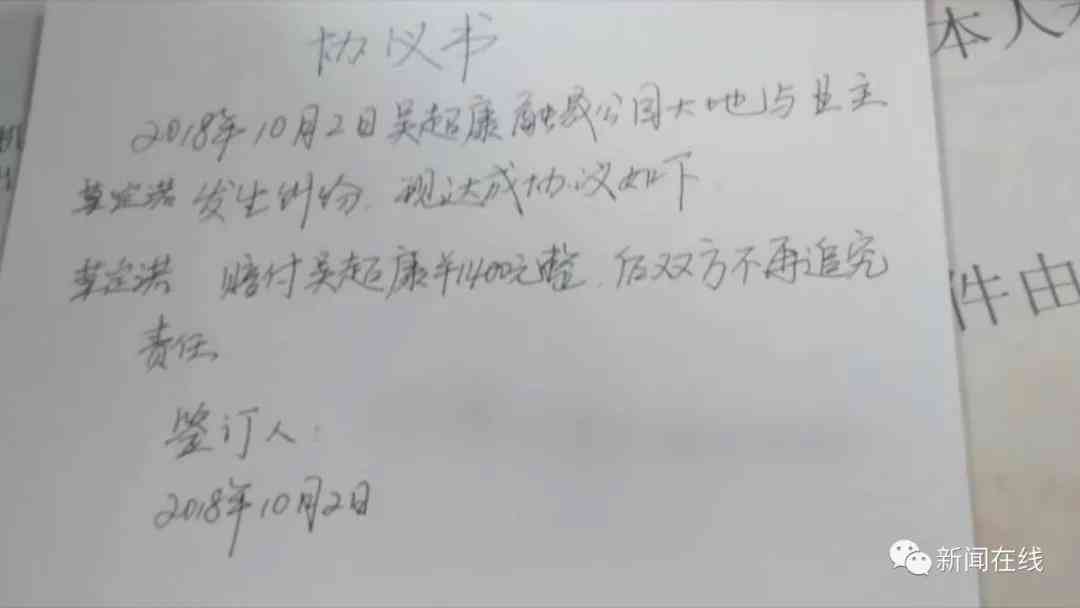 协议书
2018年10月2日吴超康融晟公园大地与业主
定洪 发生纠纷.现达成协议如下
定洪 赔付吴超康¥1400元整.后双方不再追究
责任.
签订人:
2018年10月2日
本人
件由
新闻在线